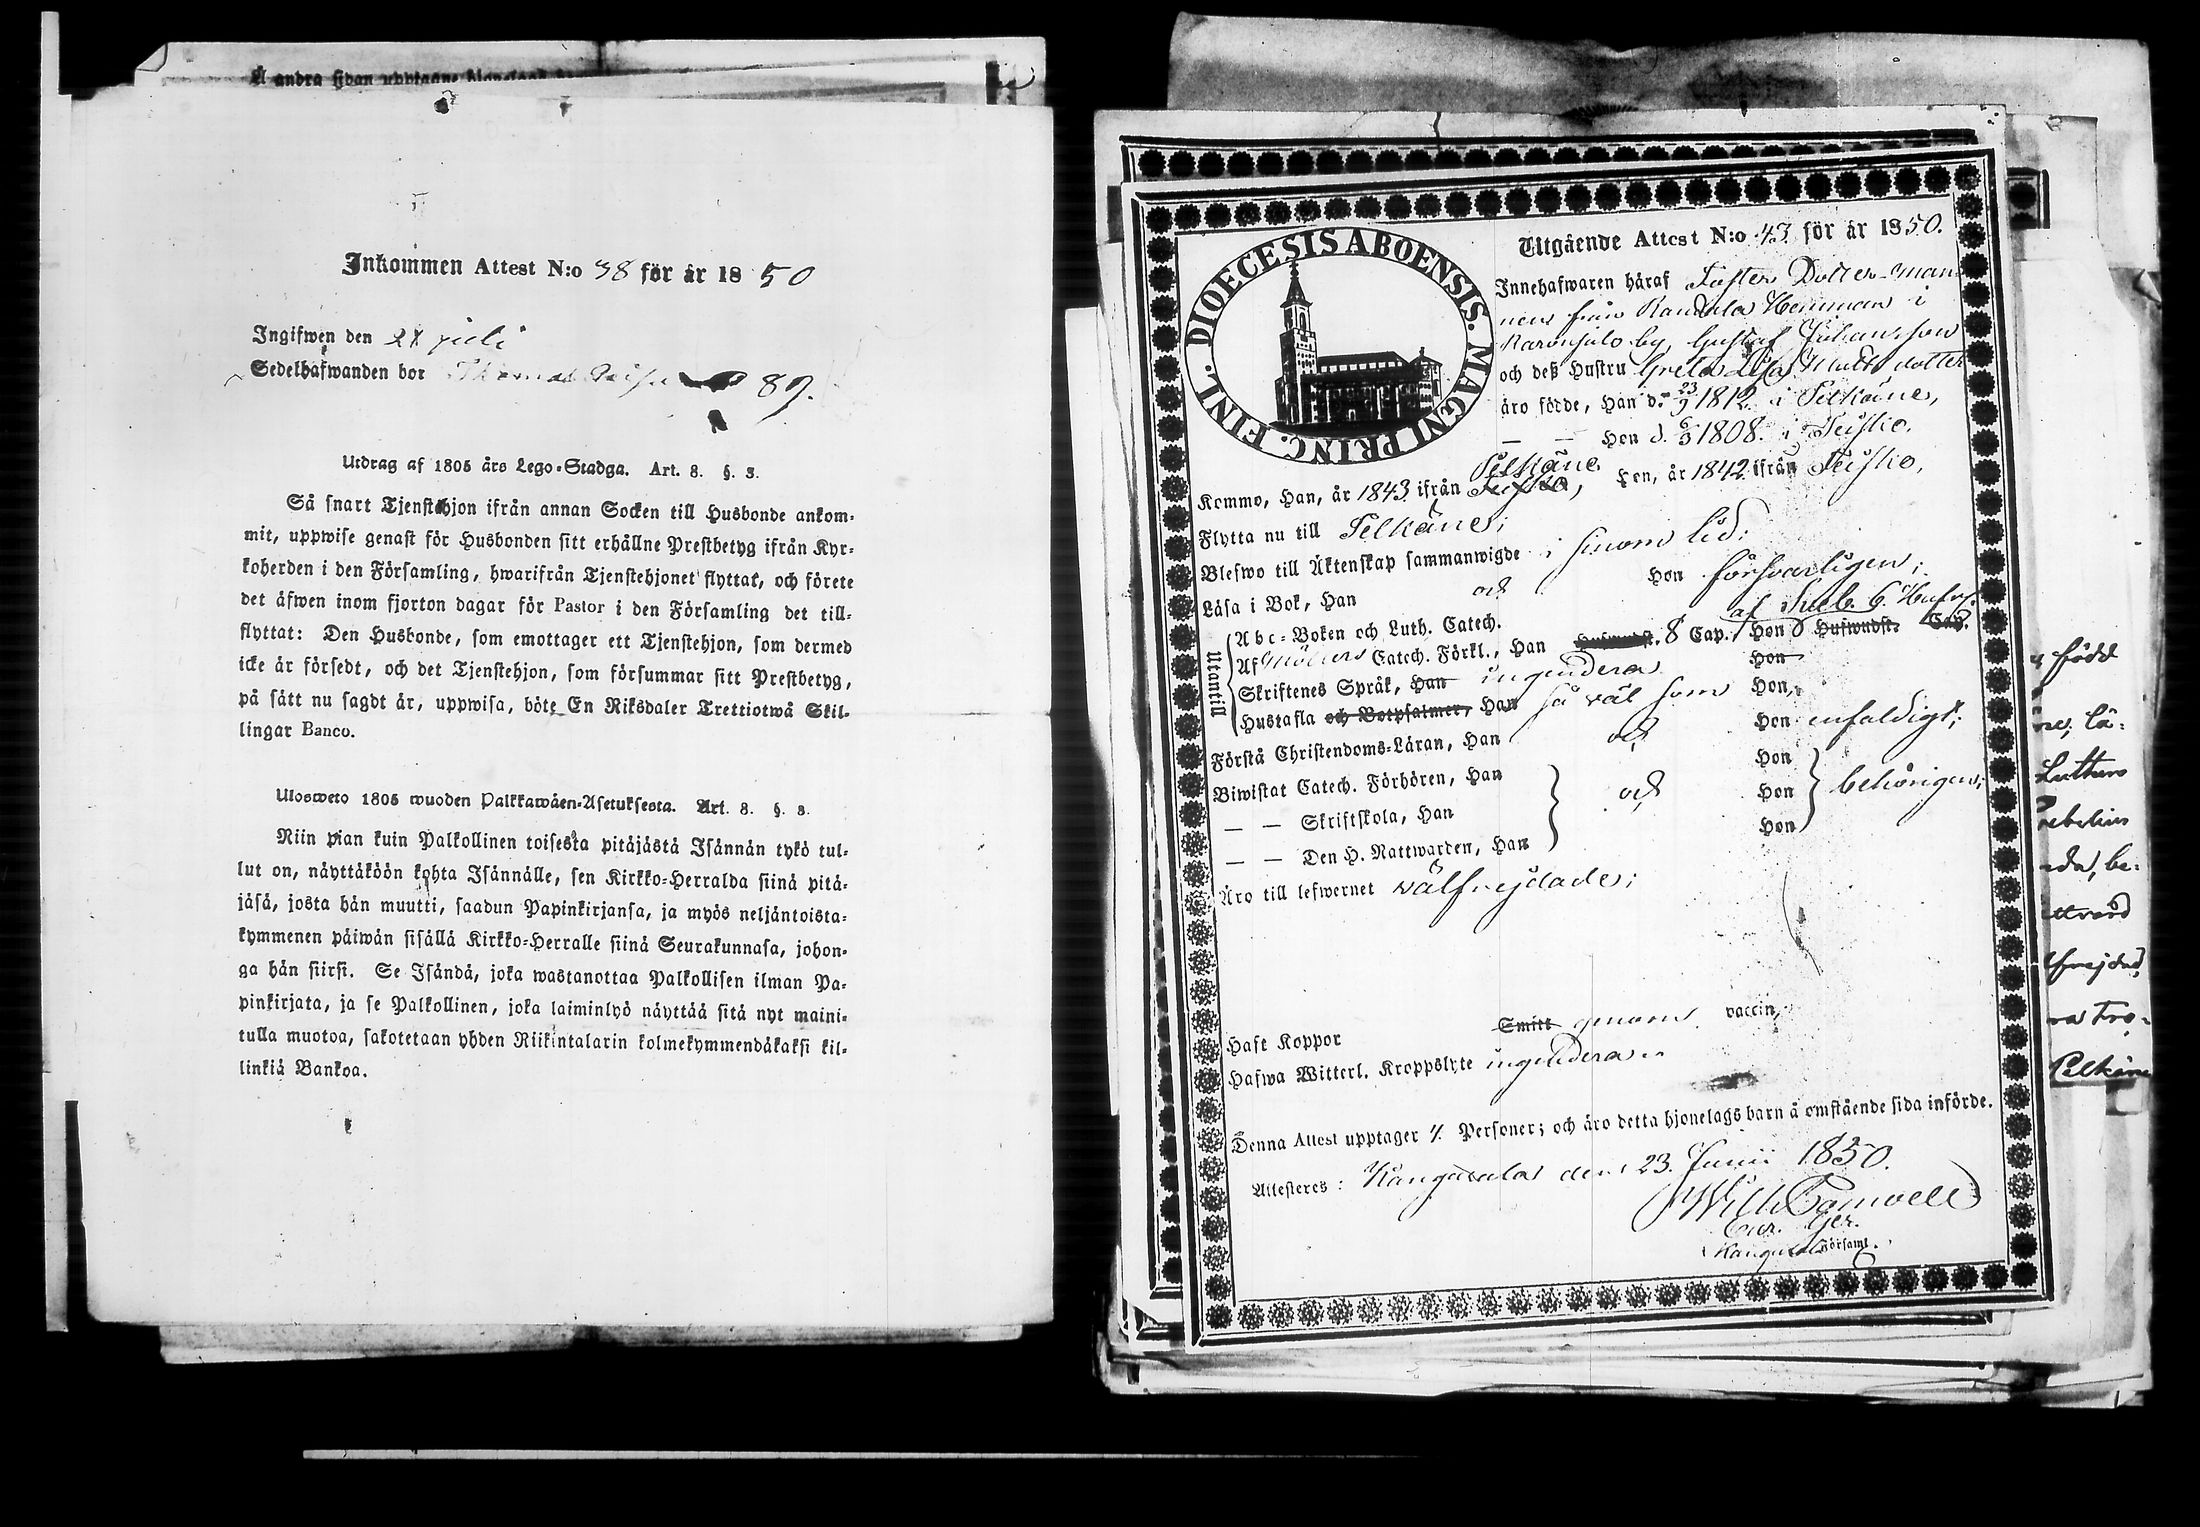 Å andra sidan upptagne
Inkommen Attest N:o 38 för år 1850
Ingifwen den 21 juli
Sedelhafwanden bor Thomas 89.
Utdrag af 1805 års Lego-Stadga. Art. 8. §. 3.
Så snart Tjenstehjon ifrån annan Socken till Husbonde ankom-
mit, uppwise genast för Husbonden sitt erhållne Prestbetyg ifrån Kyr-
koherden i den Församling, hwarifrån Tjenstehjonet flyttat, och förete
det äfwen inom fjorton dagar för Pastor i den Församling det till-
flyttat: Den Husbonde, som emottager ett Tjenstehjon, som dermed
icke är försedt, och det Tjenstehjon, som försummar sitt Prestbetyg,
på sätt nu sagdt är, uppwisa, böte En Riksdaler Trettiotwå Skil-
lingar Banco.
Ulosweto 1805 wuoden Palkkawäen-Asetuksesta. Art. 8. §. 3.
Niin pian kuin Palkollinen toisesta pitäjästä Isännän tykö tul-
lut on, näyttäköön kohta Isännälle, sen Kirkko-Herralda siinä pitä-
jäsä, josta hän muutti, saadun Papinkirjansa, ja myös neljäntoista-
kymmenen päiwän sisällä Kirkko-Herralle siinä Seurakunnasa, johon-
ga hän siirsi. Se Isändä, joka wastanottaa Palkollisen ilman Pa-
pinkirjata, ja se Palkollinen, joka laiminlyö näyttää sitä nyt maini-
tulla muotoa, sakotetaan yhden Riikintalarin kolmekymmendäkaksi kil-
linkiä Bankoa.
DIOECESIS ABOENSIS. MAGNI PRINC. FINL.
Utgående Attest N:o 43 för år 1850.
Innehafwaren häraf Inhyses Dotter-man-
nen från Randala Hemman i
by, Gustaf Johansson
och deß Hustru Greta Lisa Matts dotter
äro födde, Han d. 23/9 1812 i Pelkäne,
— — Hon d. 6/3 1808. i Teisko.
Pelkäne
Kommo, Han, år 1843 ifrån Teisko, Hon, år 1842 ifrån Teisko,
Flytta nu till Pelkäne;
Blefwo till Äktenskap sammanwigde i sinom tid;
Läsa i Bok, Han och Hon försvarligen;
Utantill
Abc-Boken och Luth. Catech. af Sveb. 6. Hufvst.
Af Möllers Catech. Förkl., Han Hufwudst. 8 Cap. Hon Hufwudst. Cap.
Skriftenes Språk, Han ingendera Hon
Hustafla och Botpsalmer, Han så väl som Hon,
Förstå Christendoms-Läran, Han och Hon enfaldigt;
Biwistat Catech. Förhören, Han Hon
— — Skriftskola, Han och Hon behörigen;
— — Den H. Nattwarden, Han Hon
Äro till lefwernet välfrejdade;
Haft Koppor Smitt genom vaccin,
Hafwa Witterl. Kroppslyte ingendera
Denna Attest upptager 4. Personer; och äro detta hjonelags barn å omstående sida införde.
Attesteres: Kangasala den 23. Junii 1850.
Wilh. Pomoell
Kangasala Församl.
född
lä-
Luthers
be-
Pelkäne